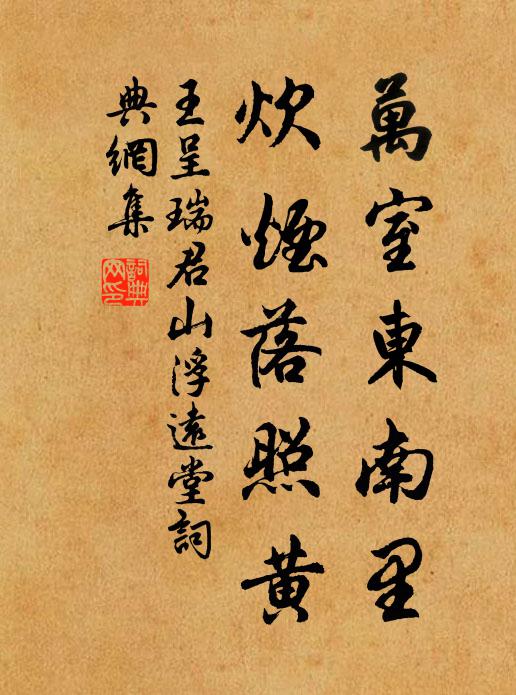 萬室東南里
炊煙落照黃
王呈瑞君山浮遠堂詞
典網集
詞典網印